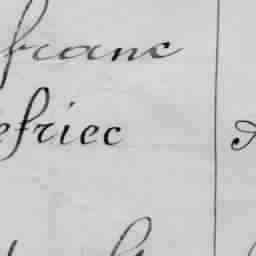 franc
efriec